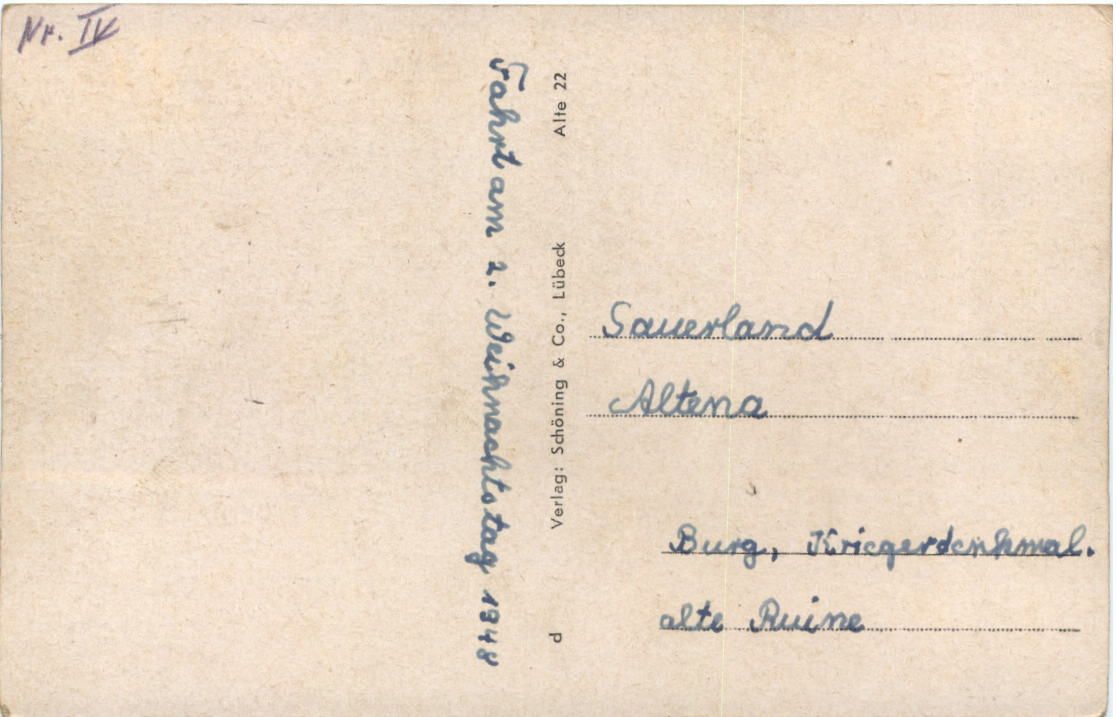 Nr. IV
Fahrt am 2. Weihnachtstag 1948
d Verlag: Schöning & Co., Lübeck Alte 22
Sauerland
Altena
Burg, Kriegerdenkmal.
alte Ruine